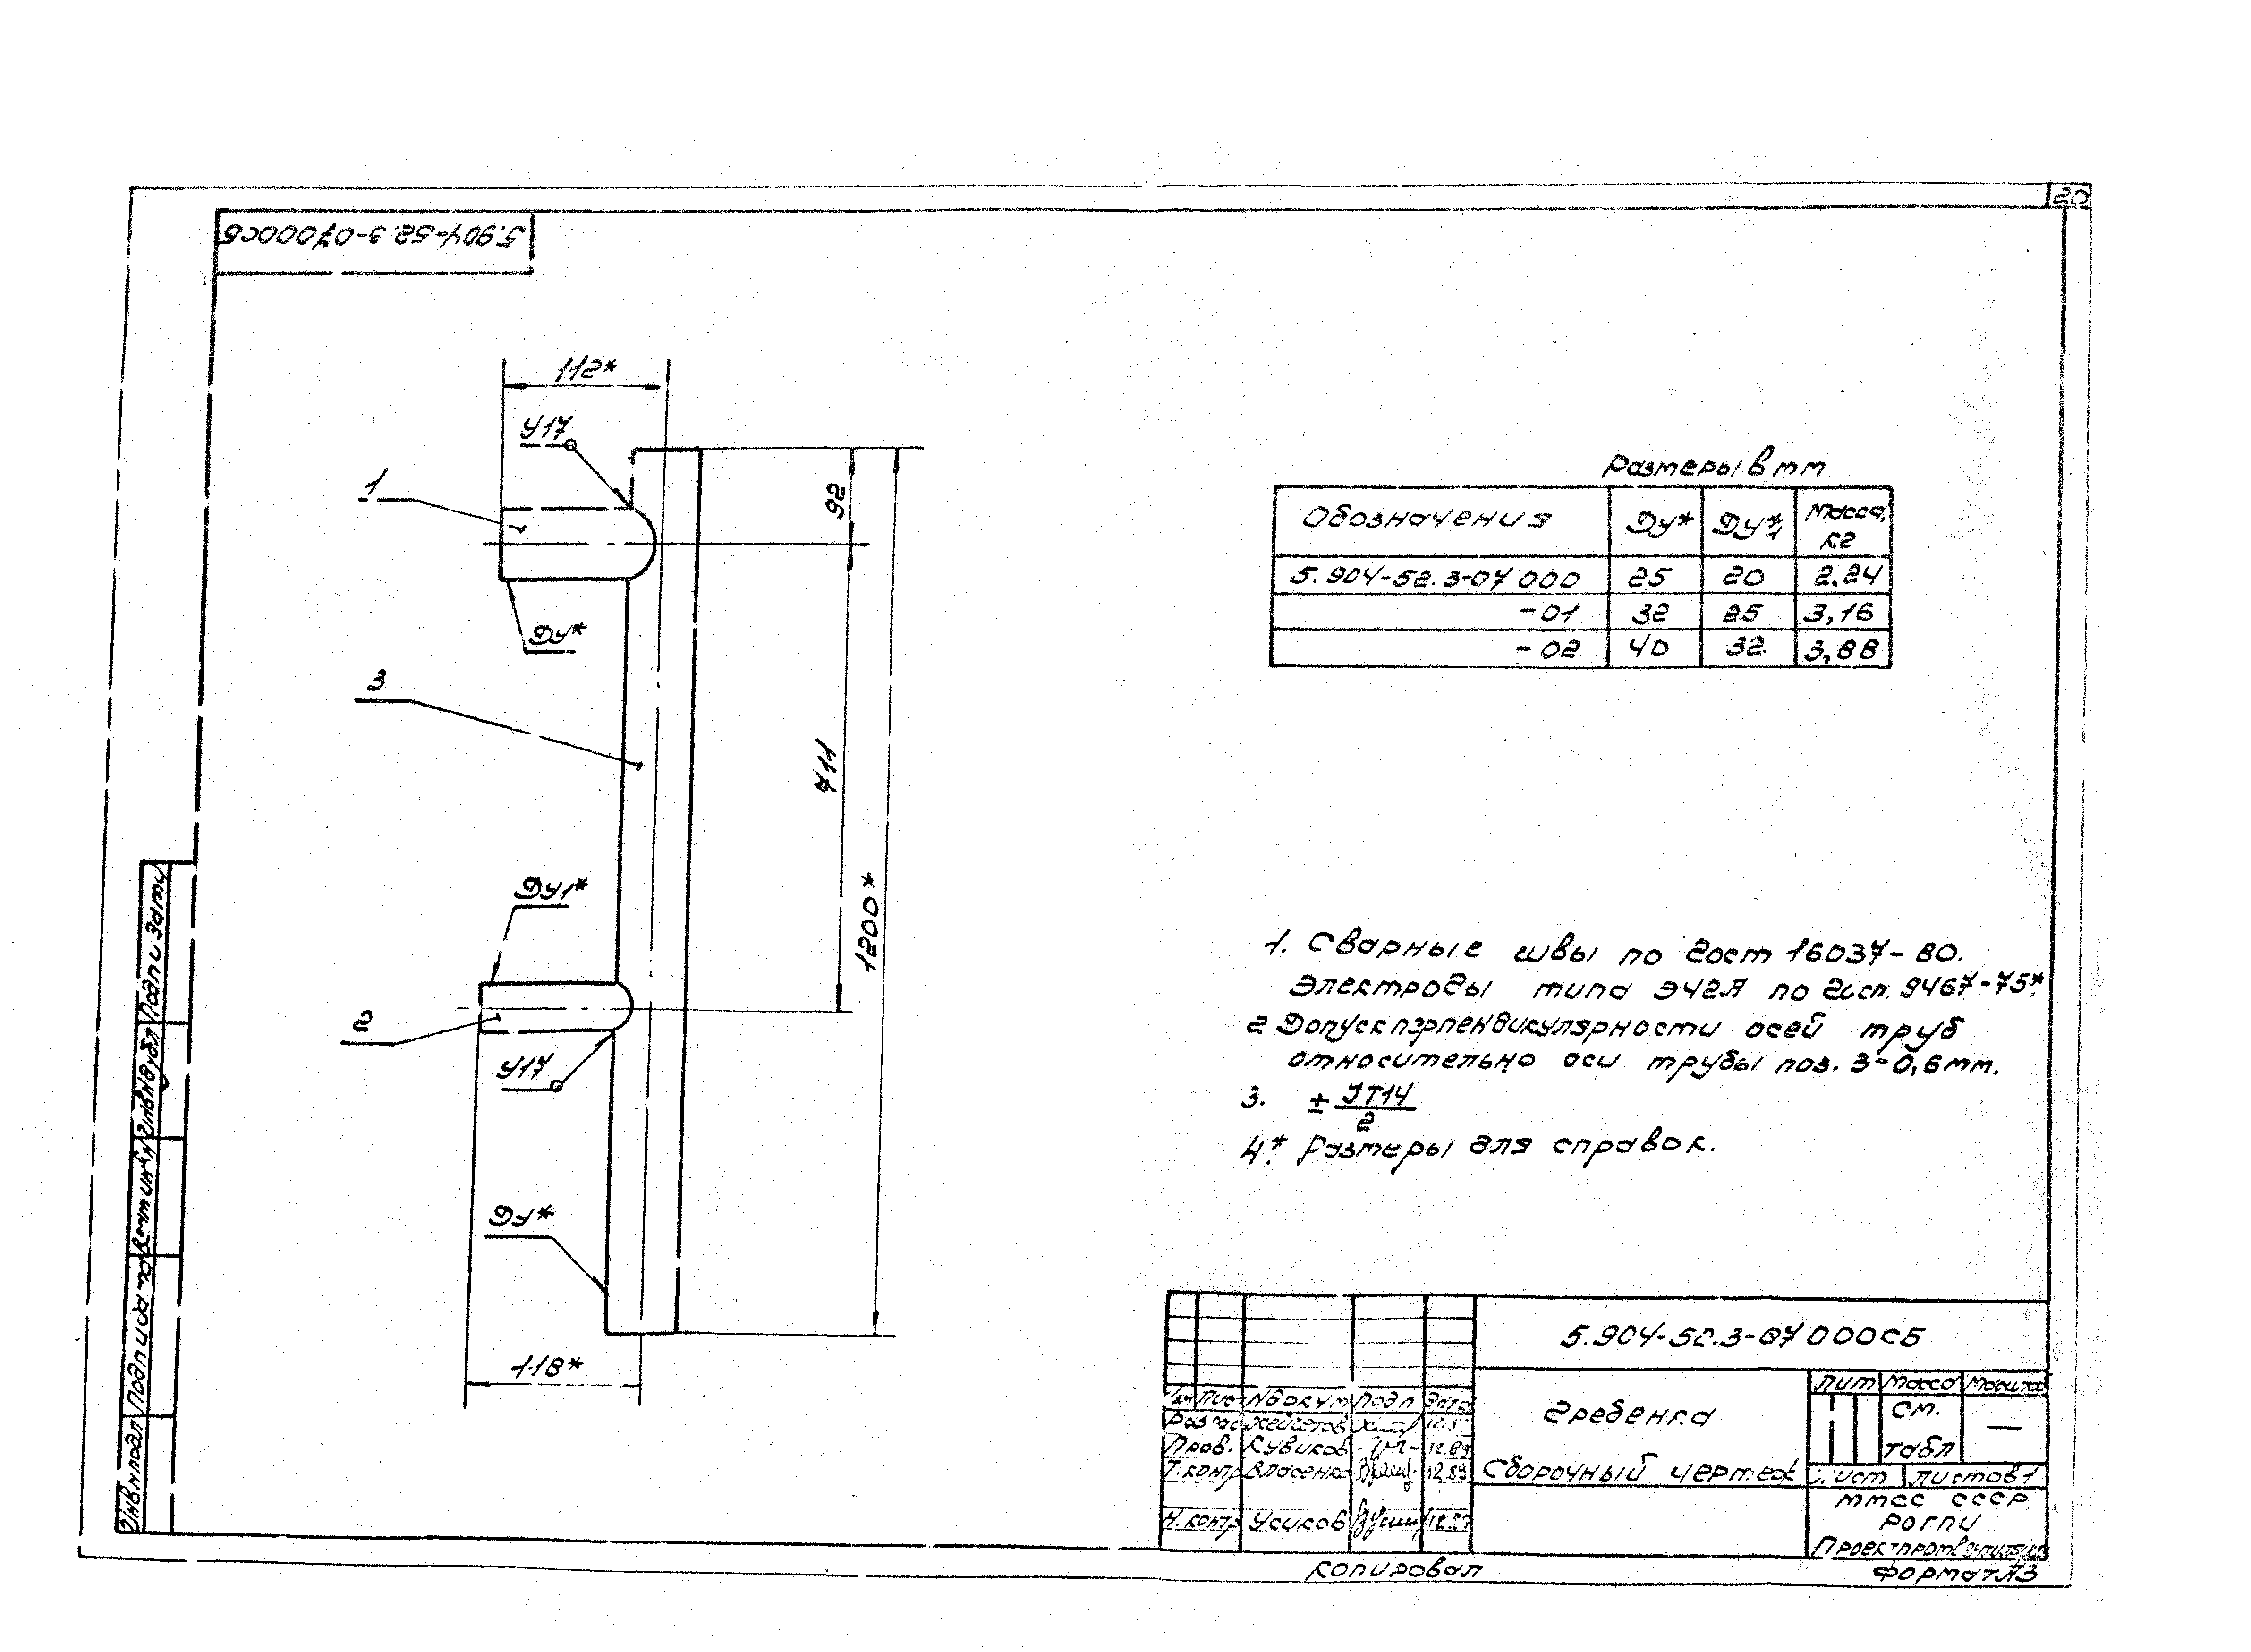 20
5.904-52.3-07000СБ
112*
У17
1
92
Ду*
3
711
Ду1*
1200*
2
У17
Ду*
118*
Размеры в мм
Обозначения Ду* Ду1* Масса, кг
5.904-52.3-07 000 25 20 2,24
-01 32 25 3,16
-02 40 32 3,88
1. Сварные швы по Гост 16037-80.
Электроды типа Э42А по Гост. 9467-75*.
2 Допуск перпендикулярности осей труб
относительно оси трубы поз. 3-0,6мм.
3. ± JT14/2
4*. Размеры для справок.
5.904-52.3-07 000СБ
Гребенка
Сборочный чертеж
Лит Масса Масштаб
См. табл —
Лист Листов 1
ММСС СССР
РОГПИ
Изм Лист № докум Подп Дата
Разраб
Пров. Кувиков 12.89
Т.контр Власенко 12.89
Н.контр Усиков
Инв.№ подл Подп и дата Взам инв № Инв № дубл Подп и дата
Копировал
Формат А3